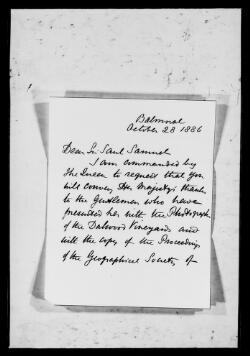 Balmoral
October 28 1886
Dear Sir Saul Samuel
I am commanded by
the Queen to request that you
will convey Her Majesty's thanks
to the Gentlemen who have
presented her with the Photographs
of the Dalwood Vineyards and
with the copy of the Proceedings
of the Geographical Society of